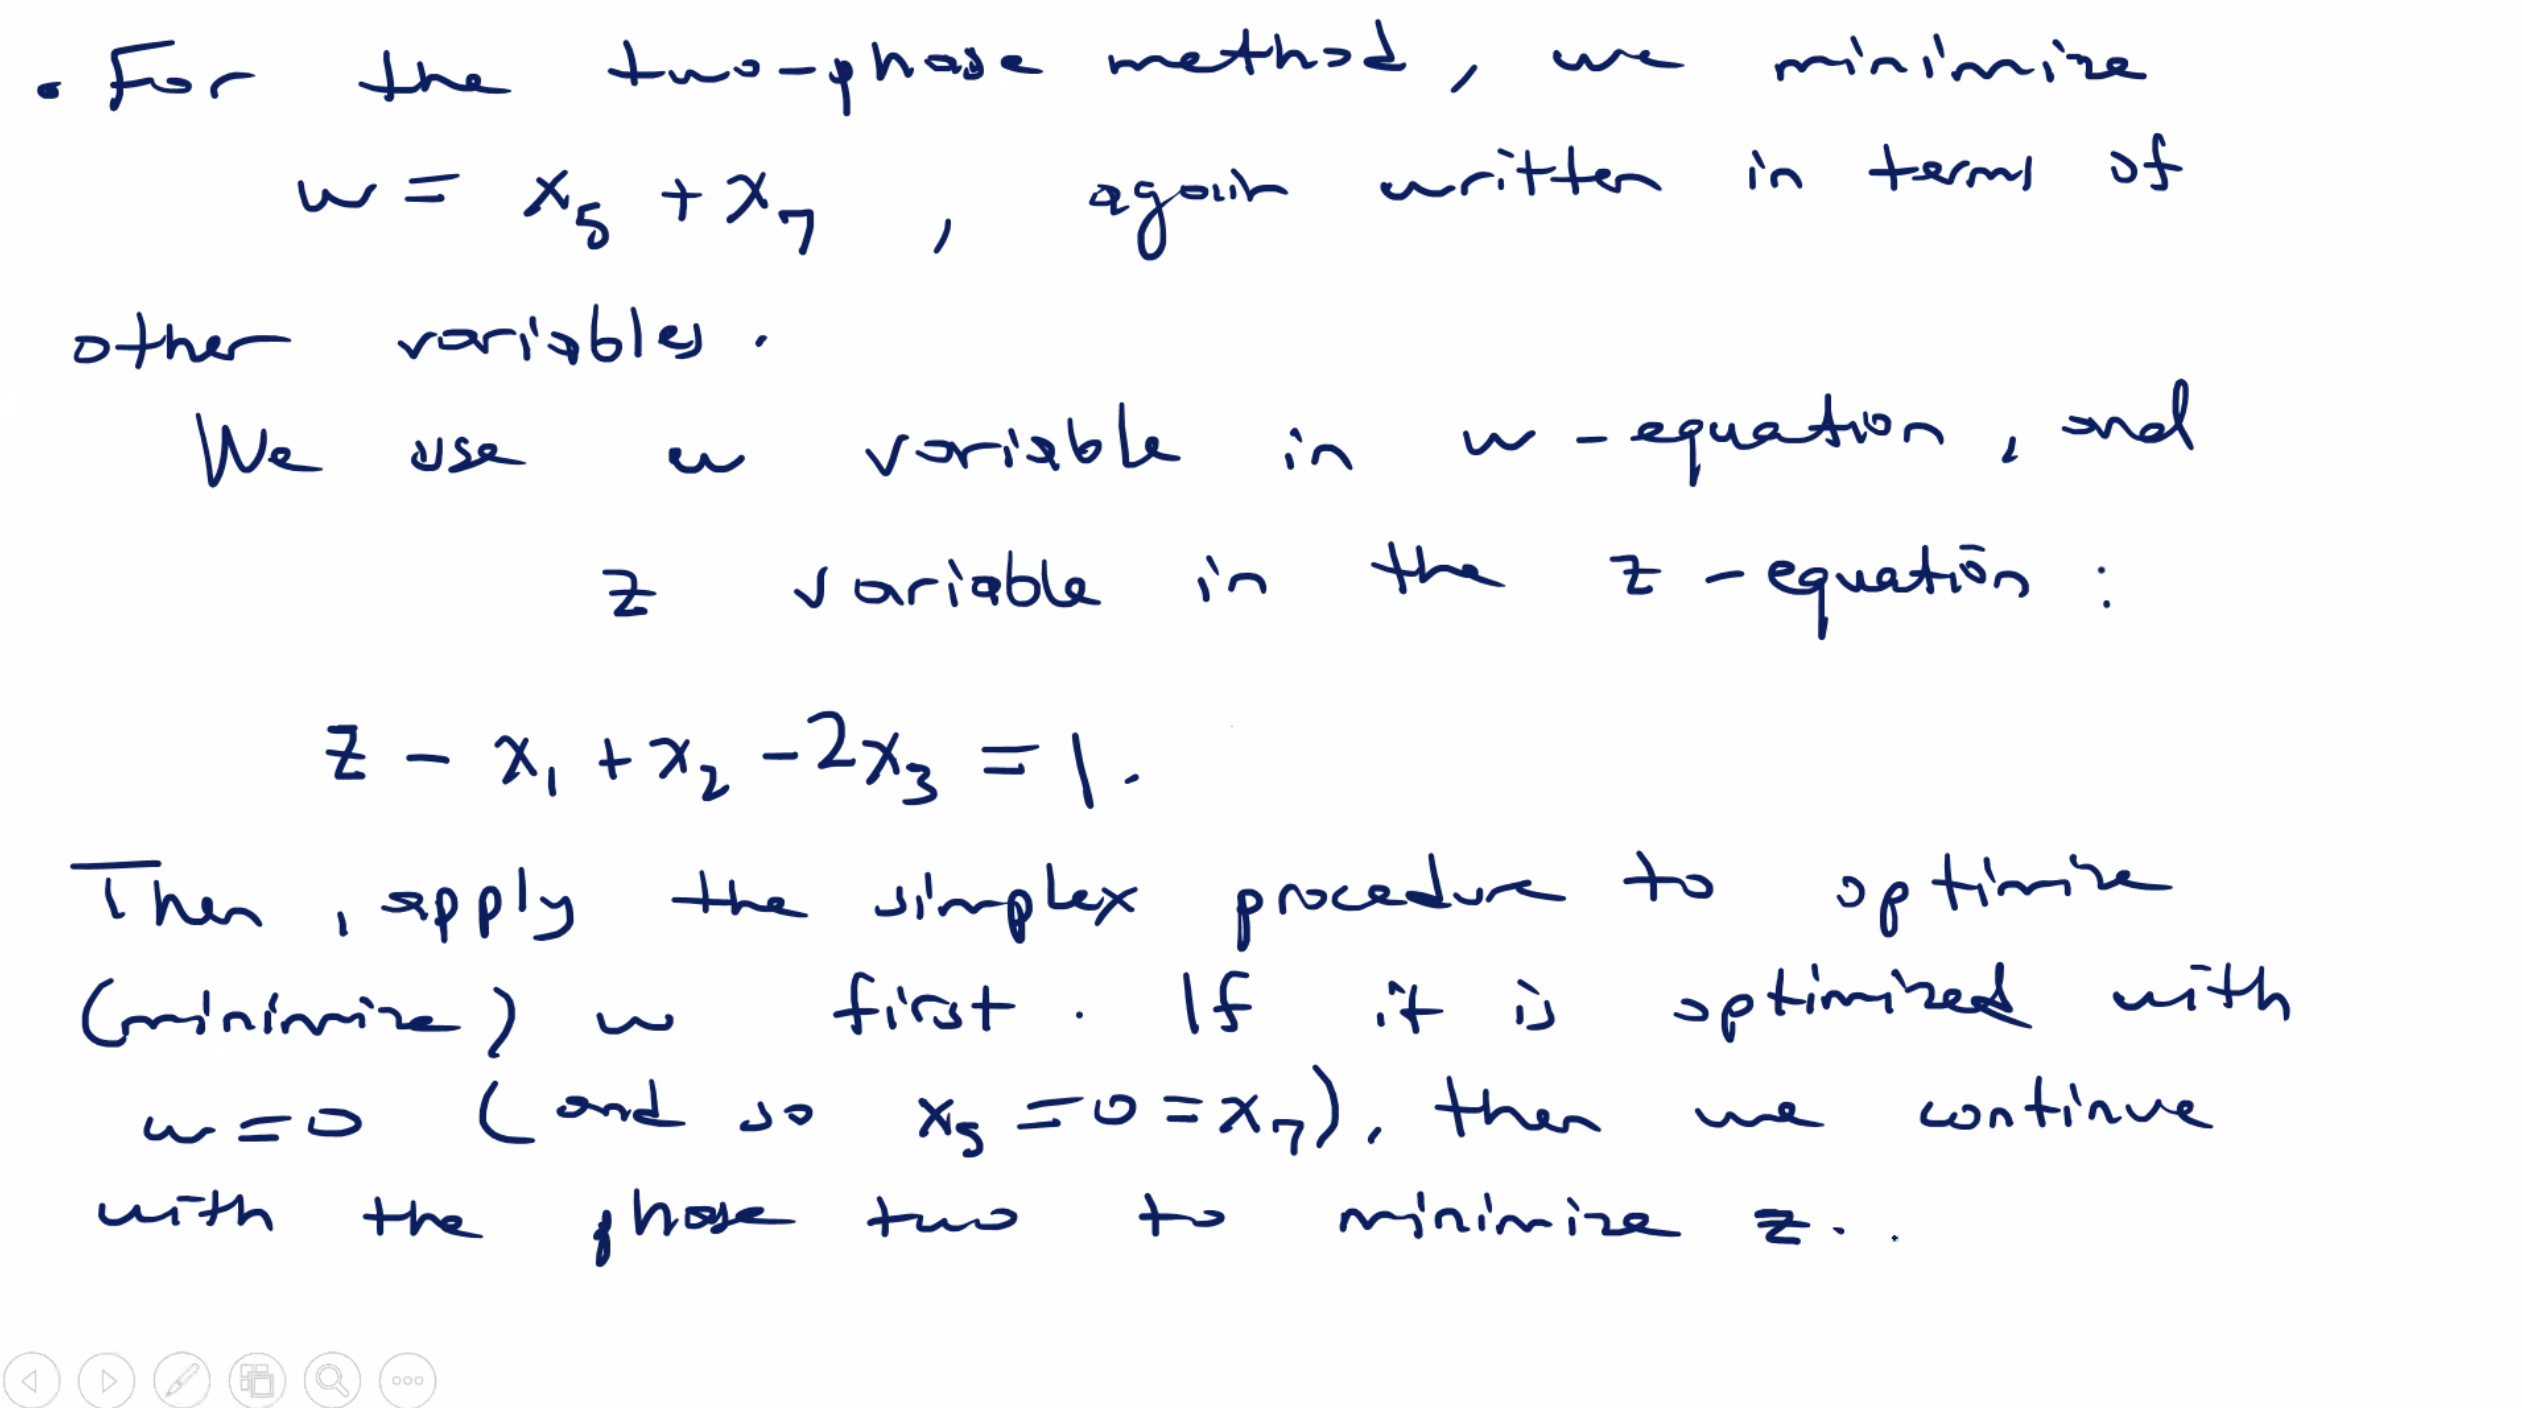 • For the two-phase method, we minimize
w = x₅ + x₇ , again written in terms of
other variables.
We use w variable in w-equation, and
z variable in the z-equation :
z - x₁ + x₂ - 2x₃ = 1.
Then, apply the simplex procedure to optimize
(minimize) w first. If it is optimized with
w = 0 (and so x₅ = 0 = x₇), then we continue
with the phase two to minimize z. .